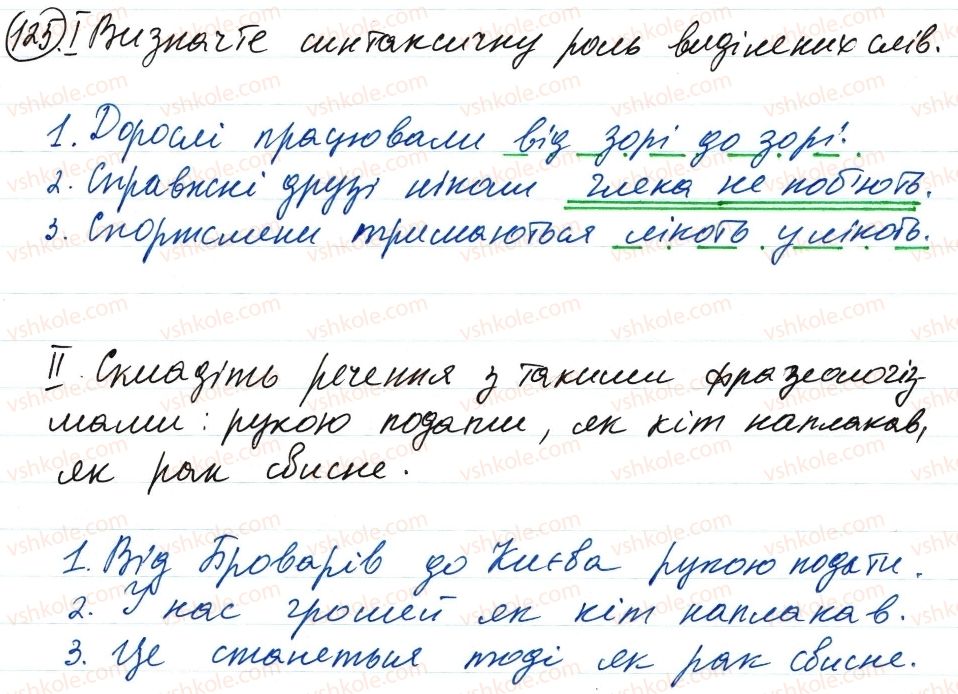 125. I Визначте синтаксичну роль виділених слів.
1. Дорослі працювали від зорі до зорі.
2. Справжні друзі ніколи глека не поб'ють.
3. Спортсмени тримаються лікоть у лікоть.
II Складіть речення з такими фразеологіз-
мами: рукою подати, як кіт наплакав,
як рак свисне.
1. Від Броварів до Києва рукою подати.
2. У нас грошей як кіт наплакав.
3. Це станеться тоді як рак свисне.